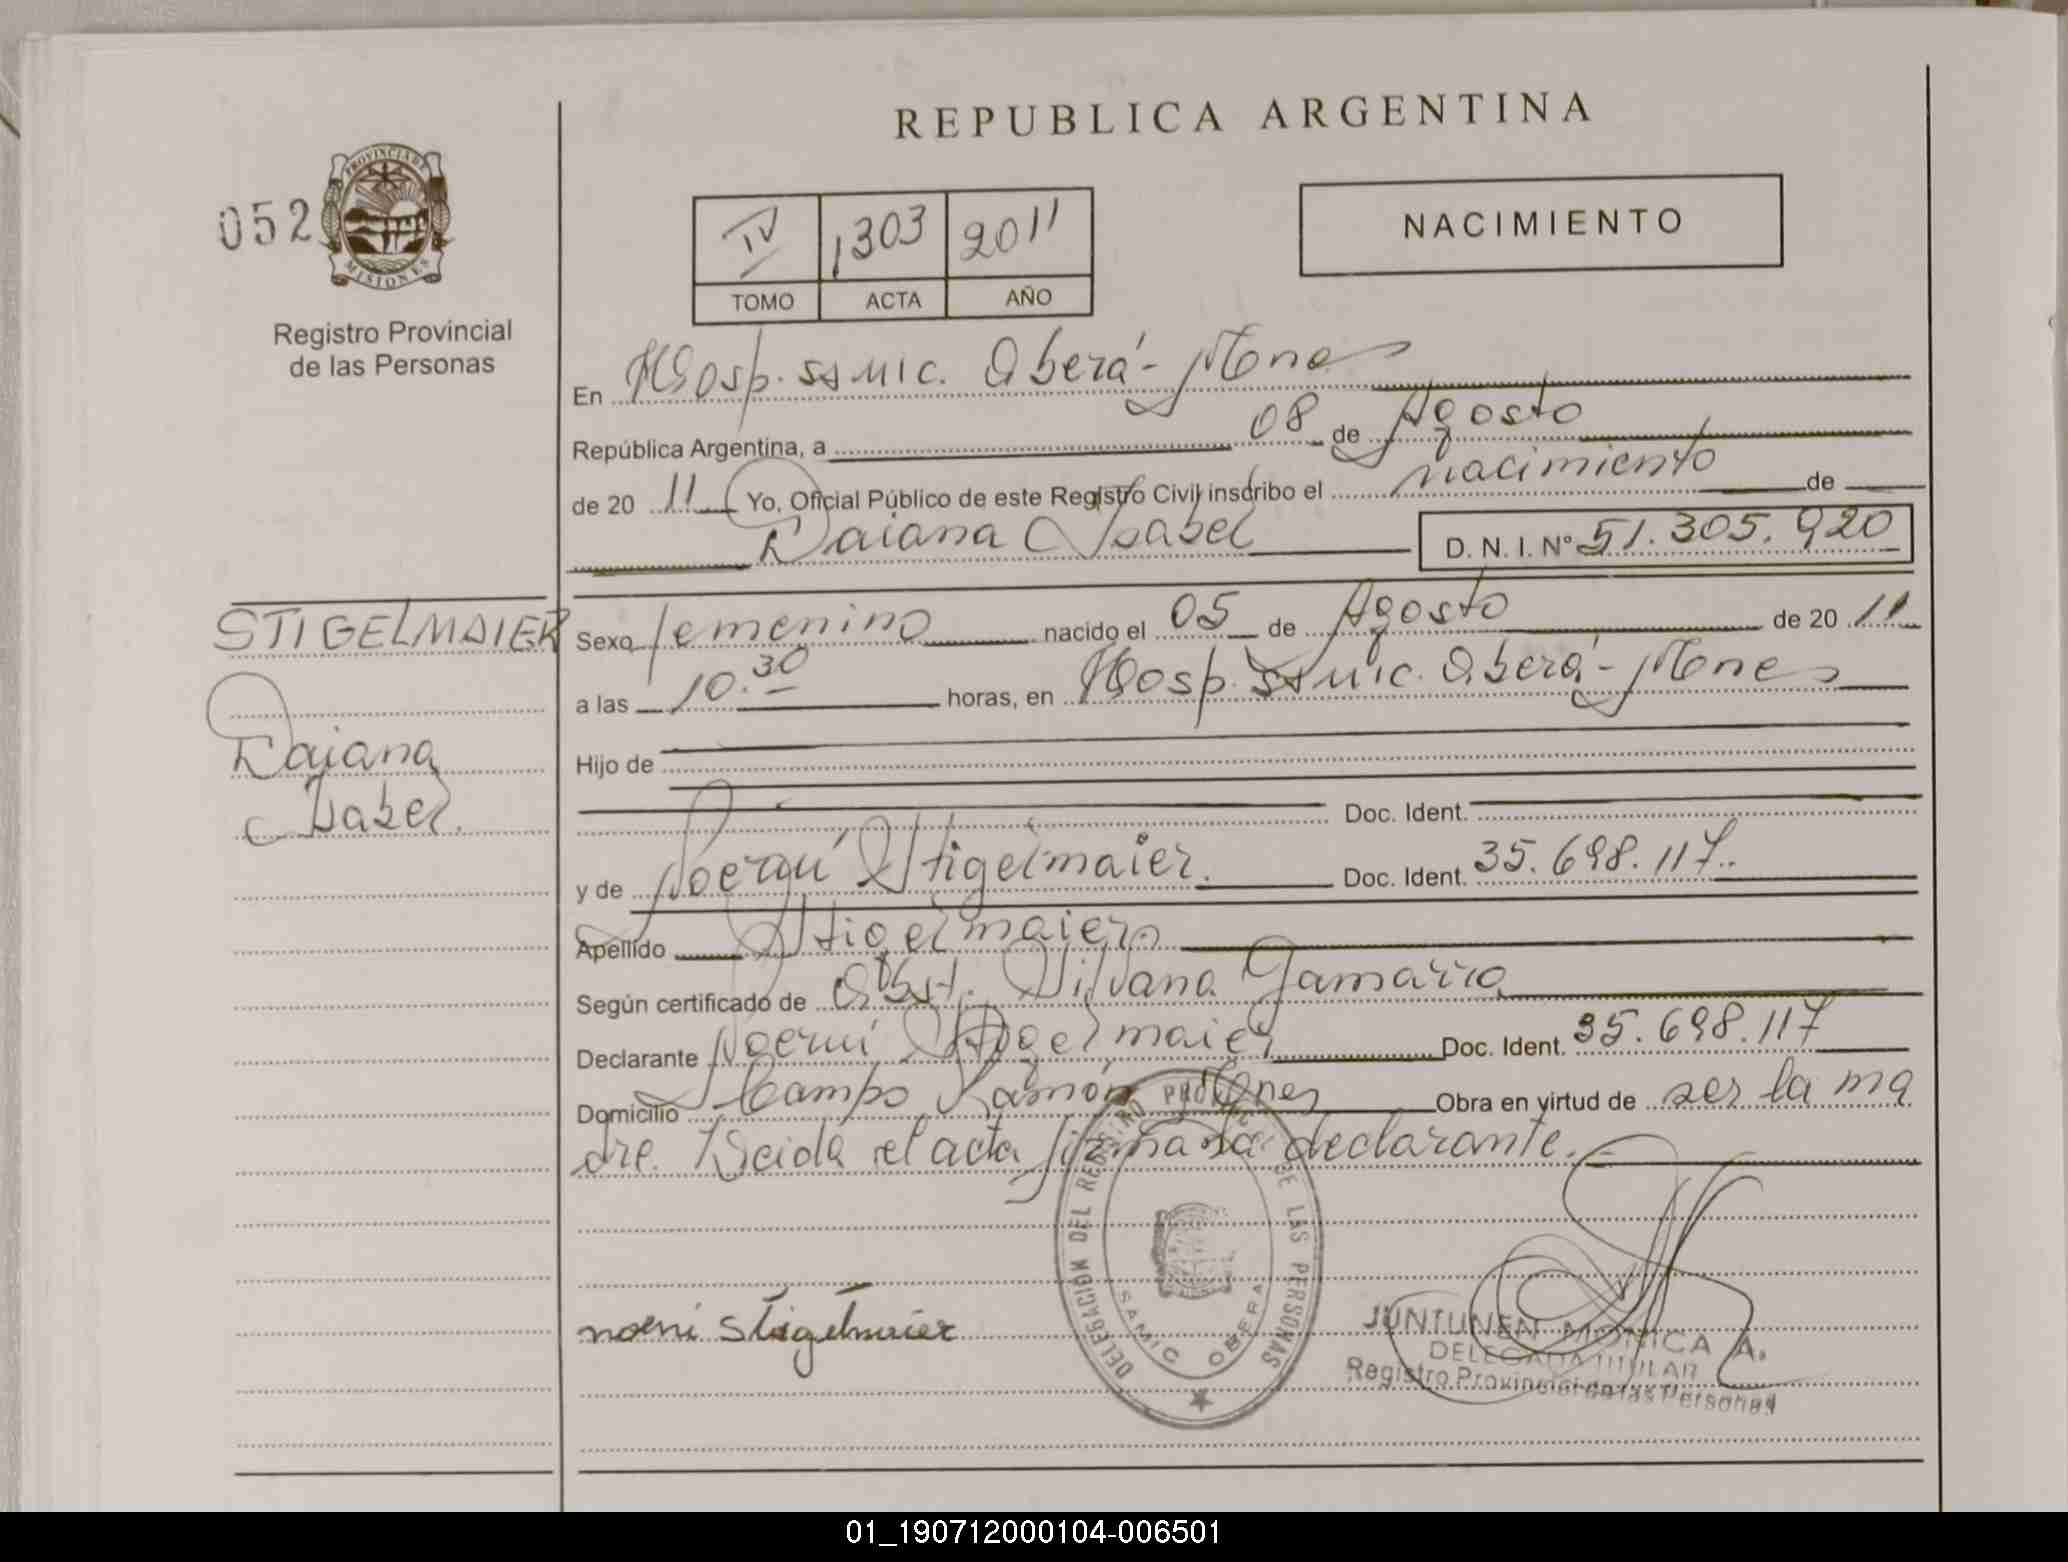 REPUBLICA ARGENTINA
052
PROVINCIA DE MISIONES
Registro Provincial
de las Personas
IV 1303 2011
TOMO ACTA AÑO
NACIMIENTO
En Hosp. SSMIC. Oberá - Mnes
República Argentina, a 08 de Agosto
de 20 11 Yo, Oficial Público de este Registro Civil inscribo el nacimiento de
Daiana Isabel D. N. I. Nº 51.305.920
STIGELMAIER
Daiana
Isabel.
Sexo femenino nacido el 05 de Agosto de 20 11
a las 10.30 horas, en Hosp. SSMIC. Oberá - Mnes
Hijo de
Doc. Ident.
y de Noemí Stigelmaier. Doc. Ident. 35.698.117.
Apellido Stigelmaier
Según certificado de Obst. Silvana Gamarra
Declarante Noemí Stigelmaier Doc. Ident. 35.698.117
Domicilio Campo Ramón Mnes Obra en virtud de ser la ma
dre. Leida el acta firma la declarante.
DELEGACION DEL REGISTRO PROVINCIAL DE LAS PERSONAS
SAMIC OBERA
noemi Stigelmaier
JUNTUNEN MONICA A.
DELEGADA TITULAR
Registro Provincial de las Personas
01_190712000104-006501